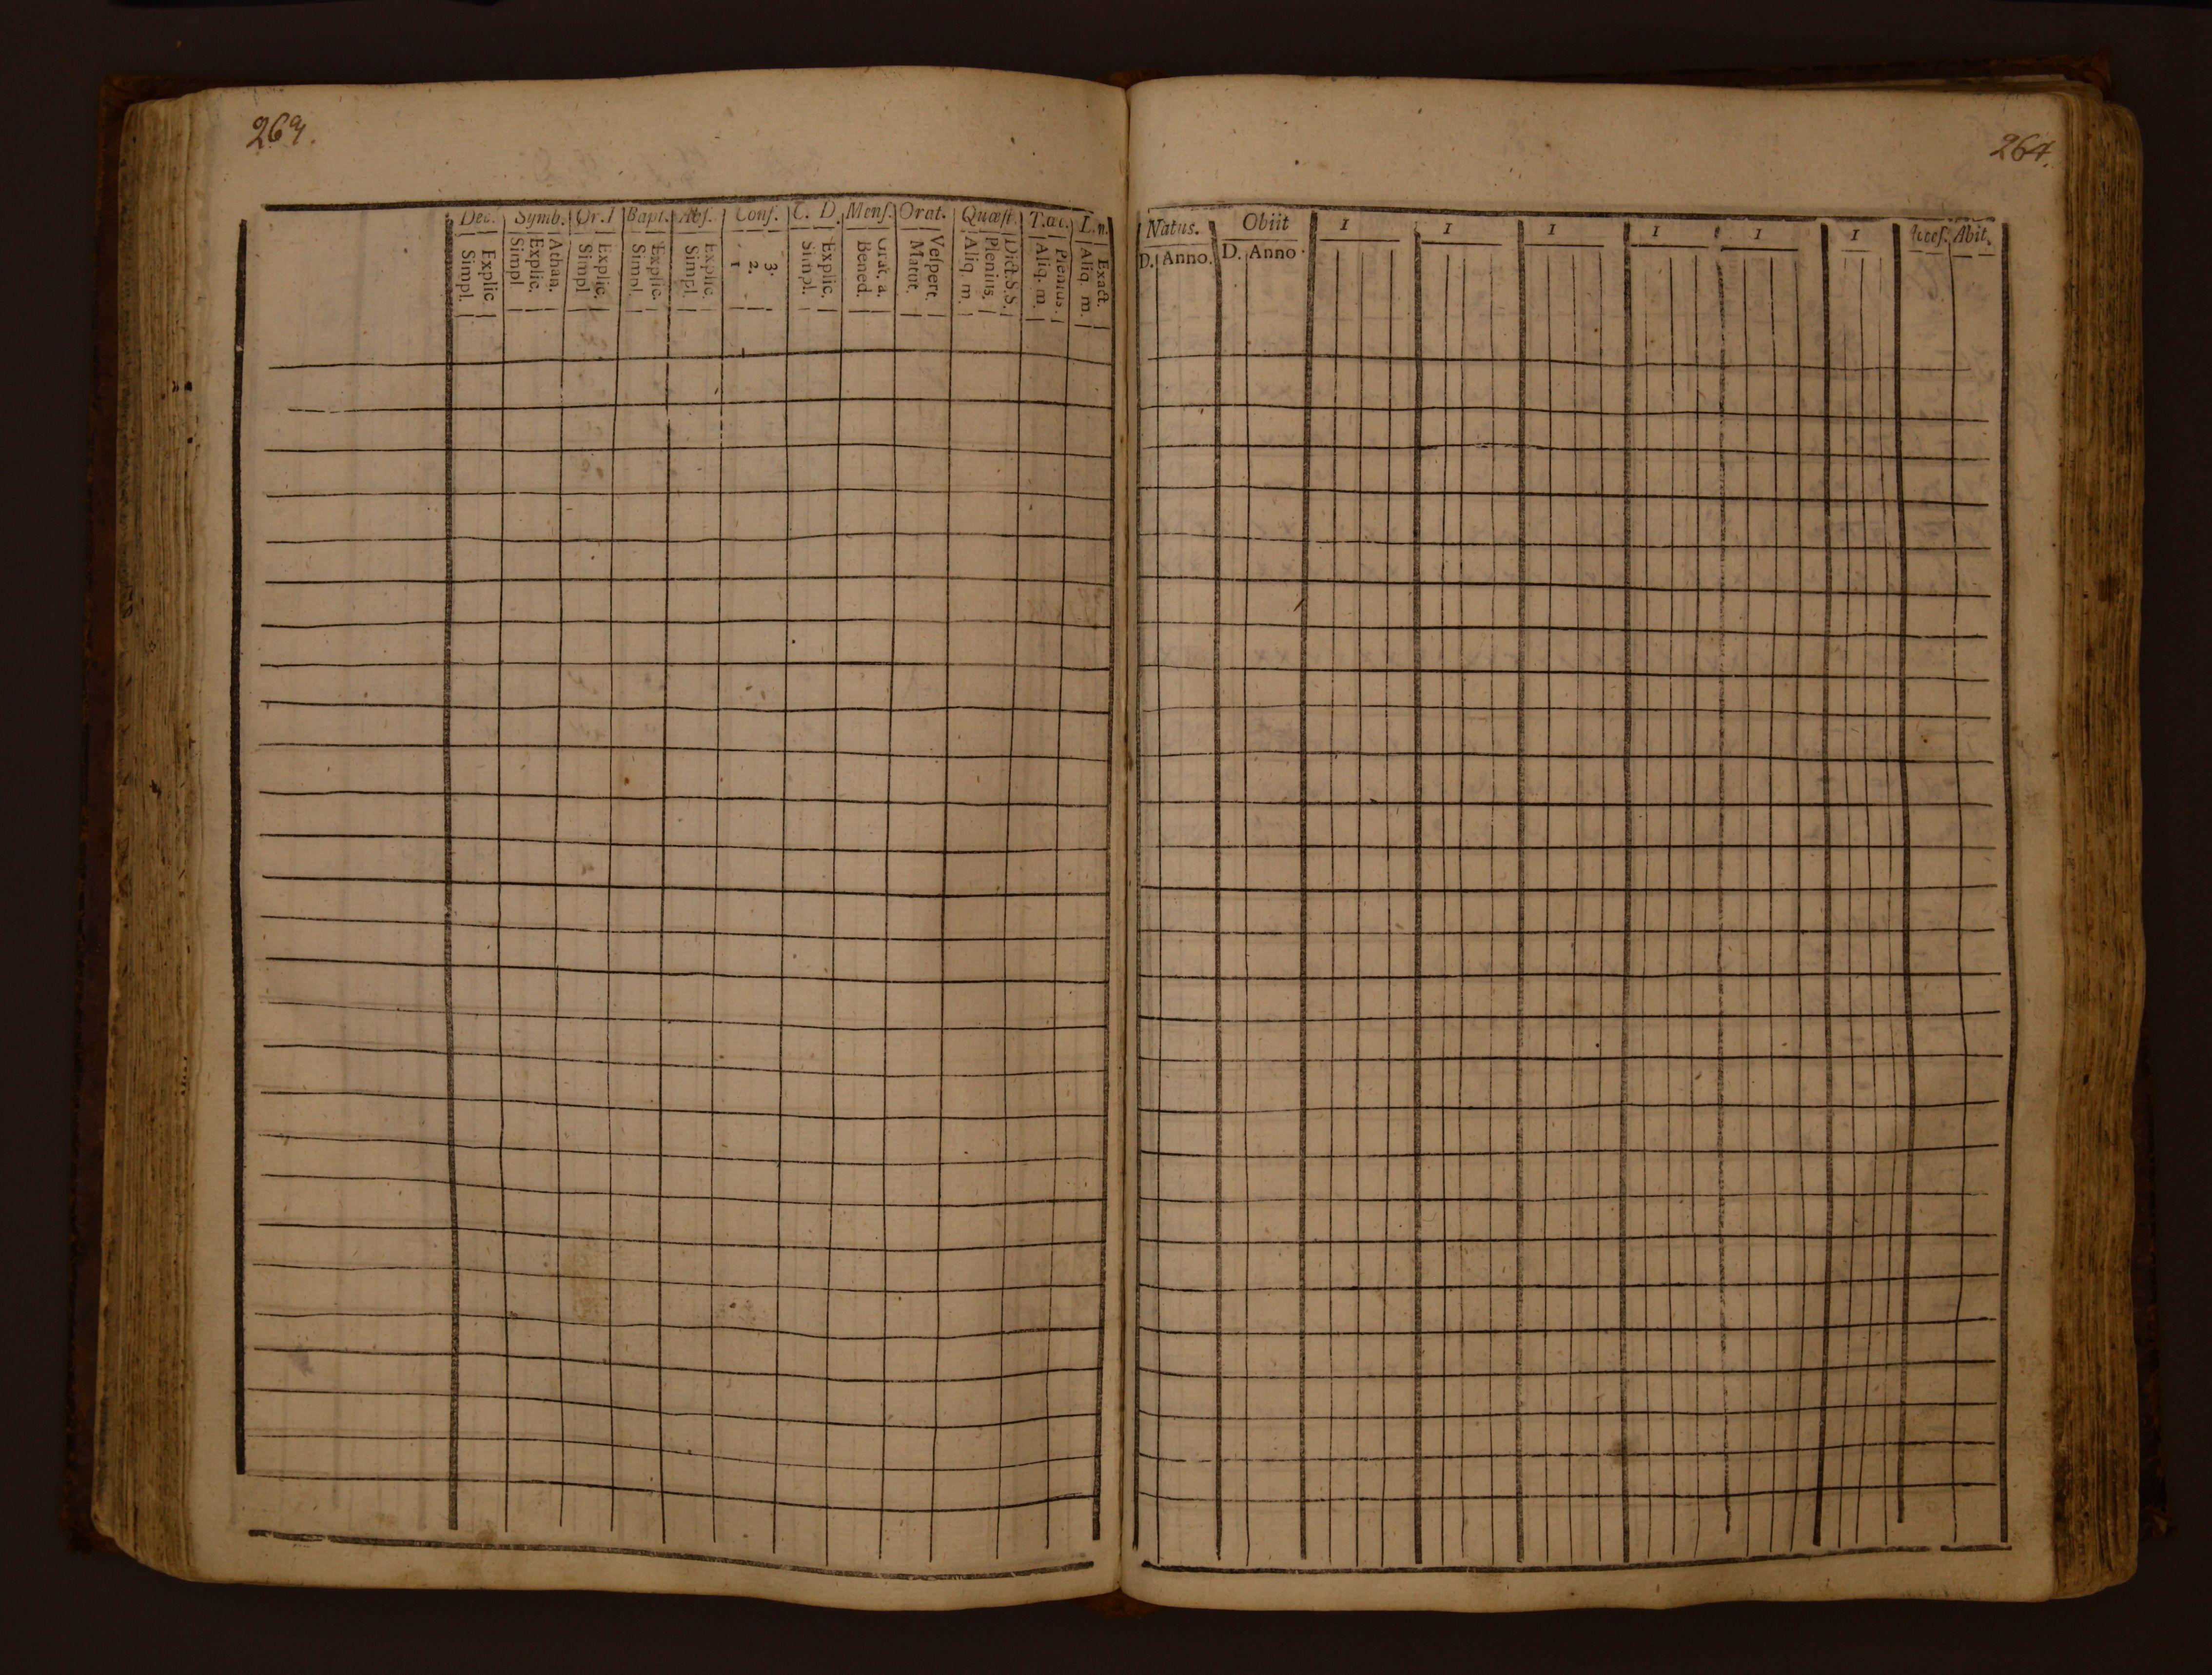 264.
Dec. Symb. Or.I Bapt. Abſ. Conf. C. D. Menſ. Orat. Quæſt. T.æc. L.n.
Explic. Simpl.
Athan. Explic. Simpl
Explic. Simpl
Explic. Simpl.
Explic. Simpl.
3. 2. 1
Explic. Simpl.
Grat. a. Bened.
Veſpert. Matut.
Dict.S.S. Plenius. Aliq. m.
Plenius. Aliq. m.
Exact. Aliq. m.
264.
Natus. Obiit I I I I I I Acceſ. Abit.
D. Anno. D. Anno